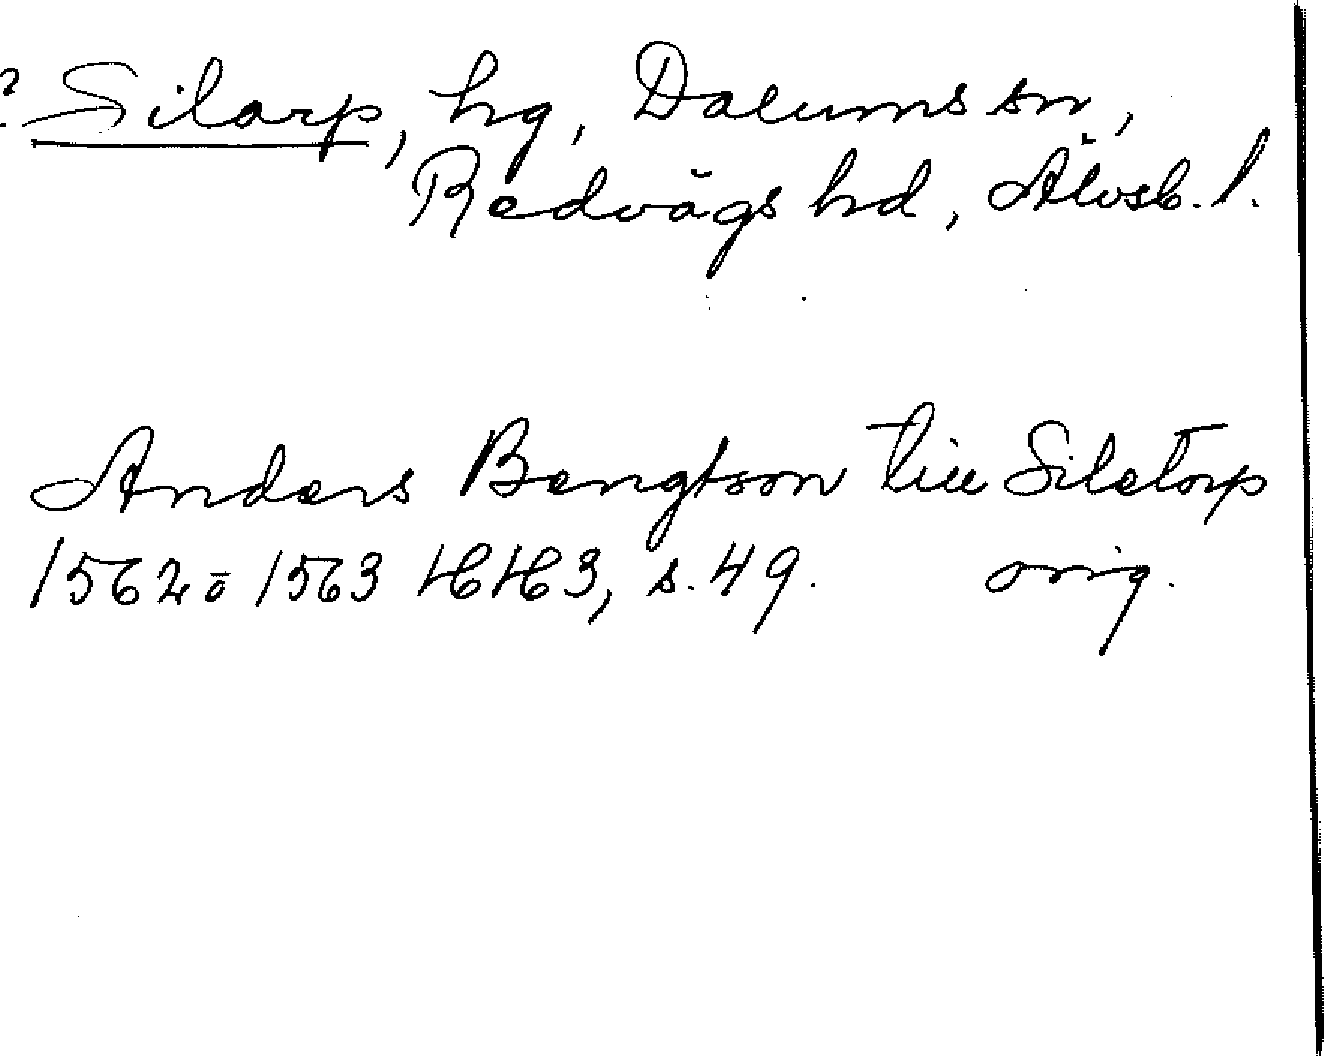 ? Silarp, hg, Dalums sn,
Redvägs hd, Älvsb. l.
Anders Bengtson till Siletorp
1562 o 1563 HH3, s. 49. orig.